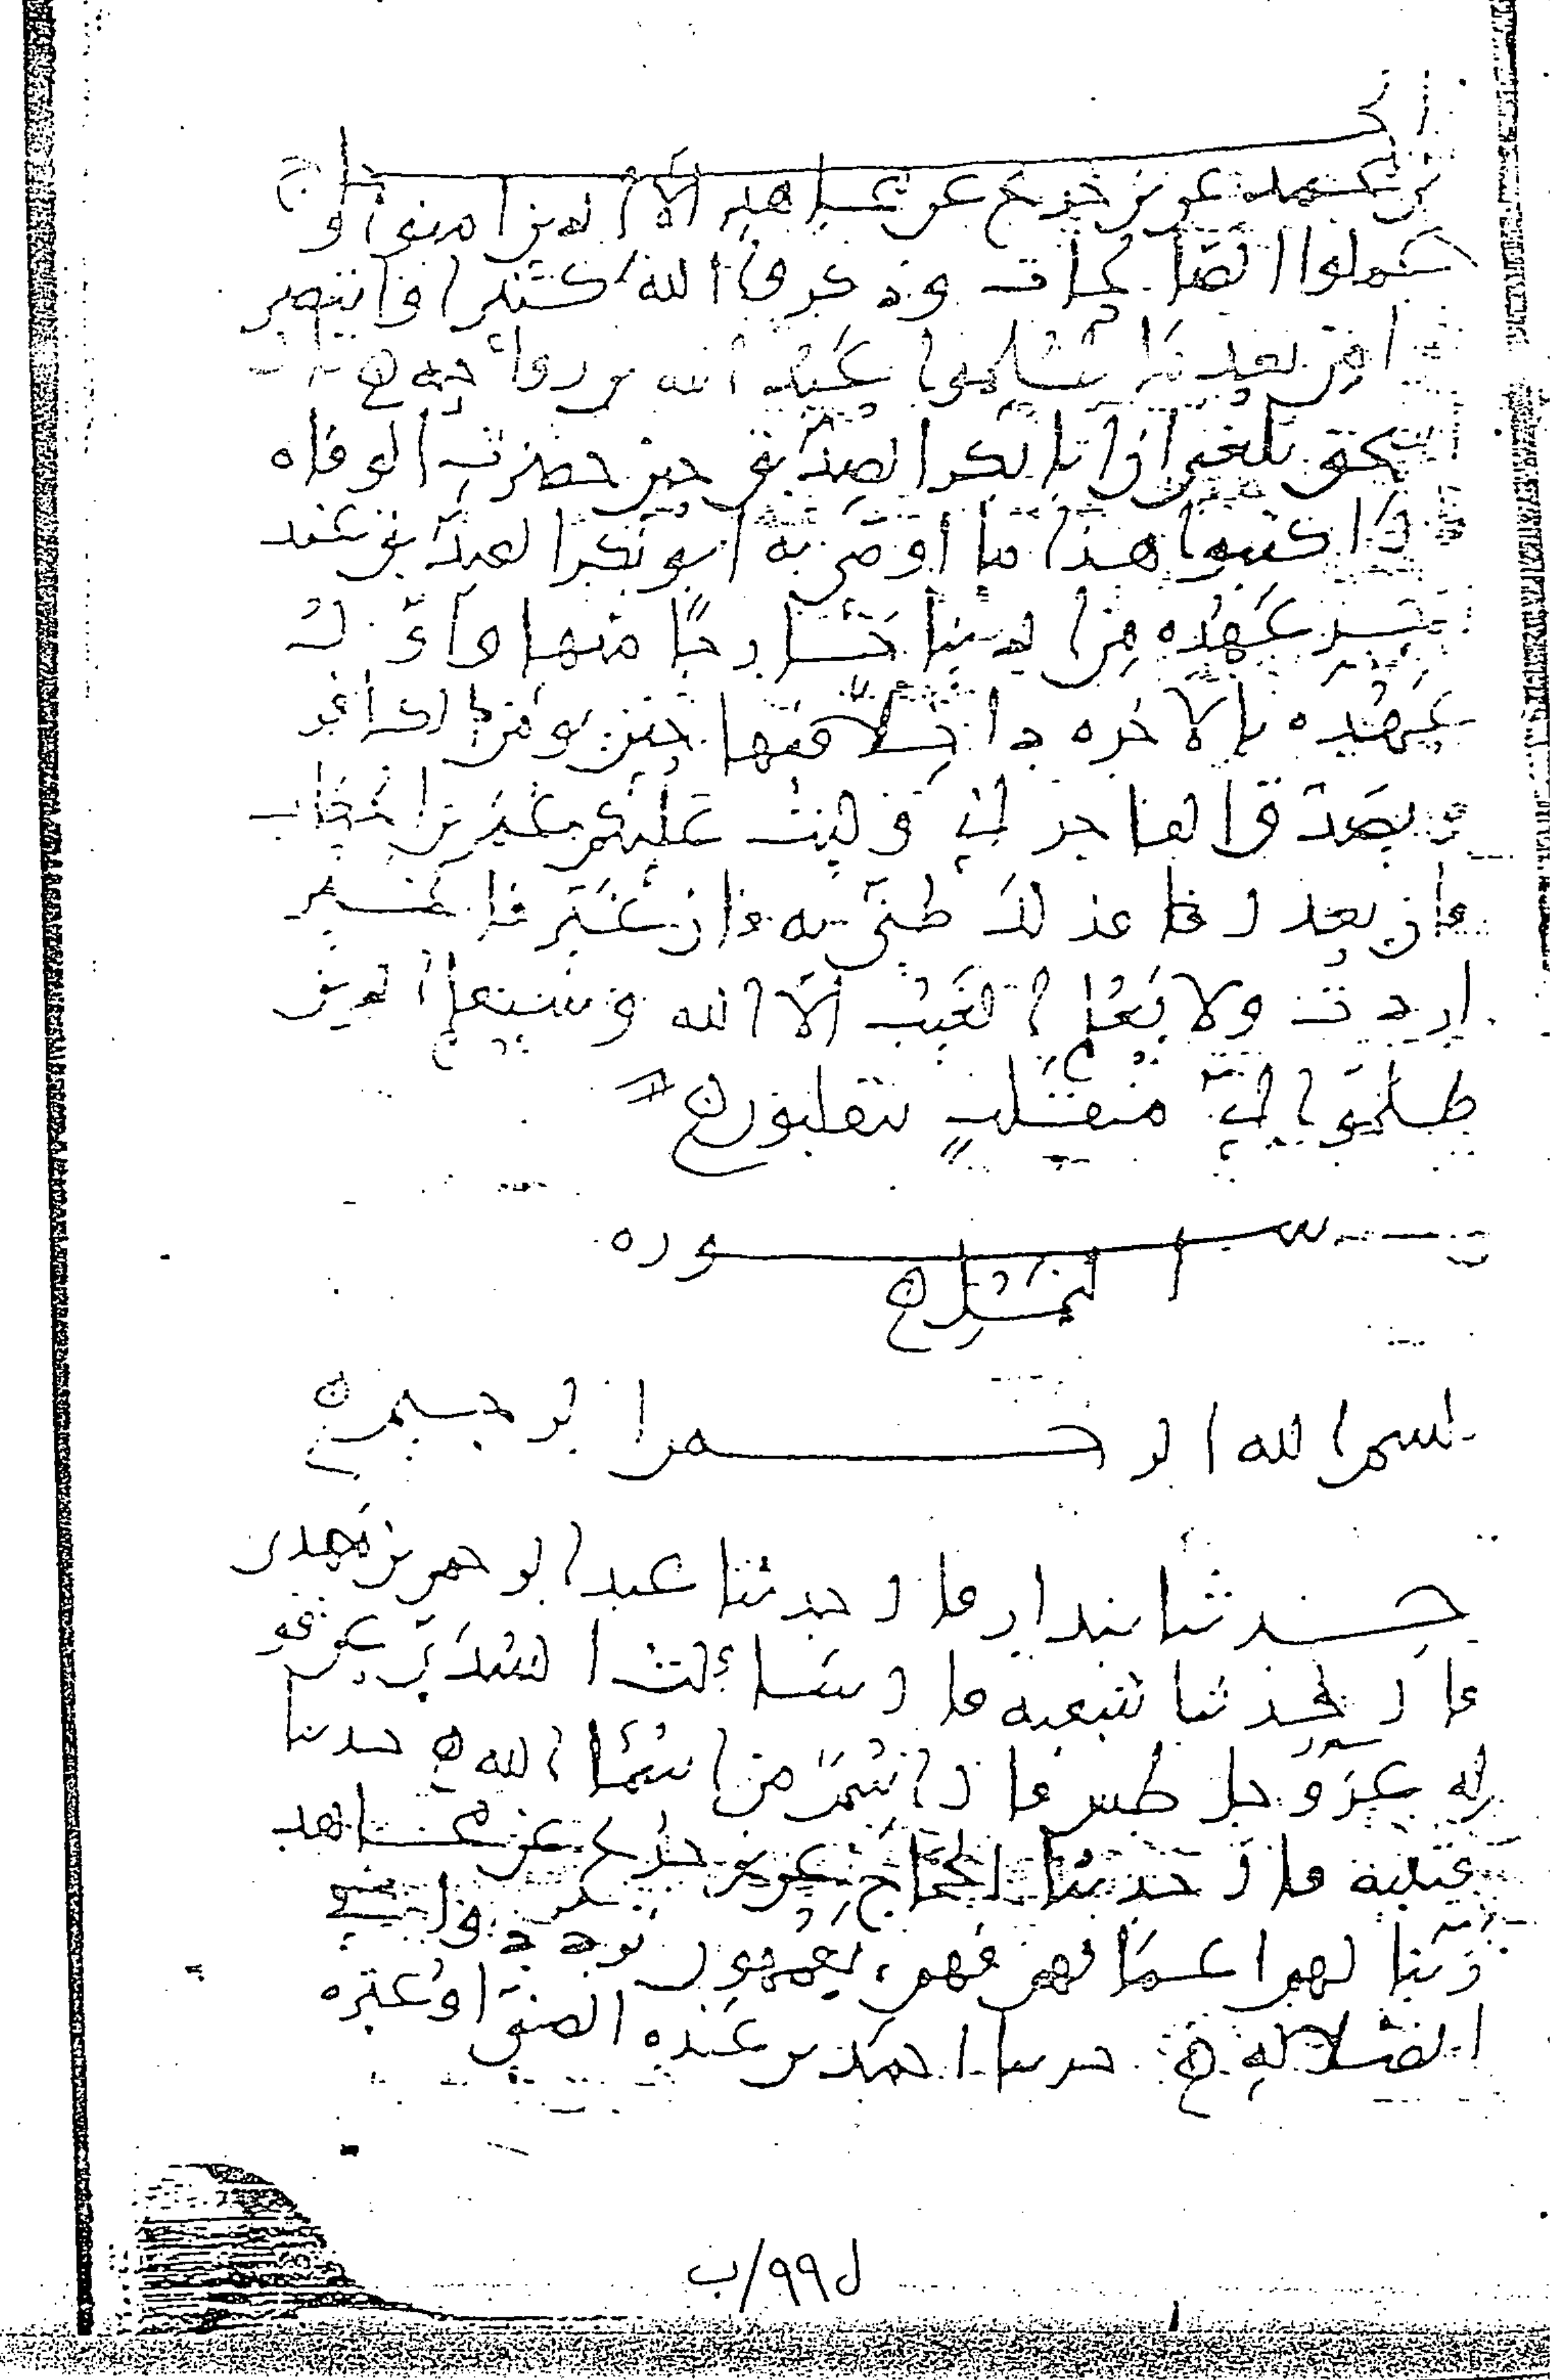 الحجاج
بن محمد عن بن جريج عن مجاهد الا الذين امنوا و
عملوا الصالحات وذكروا الله كثيرا وانتصر
وا من بعد ما ظلموا عبد الله بن رواحه
اسحق بلغنا ان ابا بكر الصديق حين حضرته الوفاه
قال اكتبوا هذا ما اوصى به ابو بكر الصديق عند
اخر عهده من الدنيا خارجا منها واول
عهده بالاخره داخلا فيها حين يومن الكافر
ويصدق الفاجر اني وليت عليكم عمر بن الخطاب
فان يعدل فذلك ظني به وان غير فالخير
اردت ولا يعلم الغيب الا الله وسيعلم الذين
ظلموا اي منقلب ينقلبون
سوره
النمل
بسم الله الرحمن الرحيم
حدثنا بندار قال حدثنا عبد الرحمن بن مهدى
قال حدثنا شعبه قال سالت السدي عن قو
له عز وجل طس قال اسم من اسما الله حدثنا
قتيبه قال حدثنا الحجاج عن بن جريج عن مجاهد
زينا لهم اعمالهم فهم يعمهون تردد وا في
الضلاله حدثنا احمد بن عبده الضبي وغيره
ل٩٩/ب